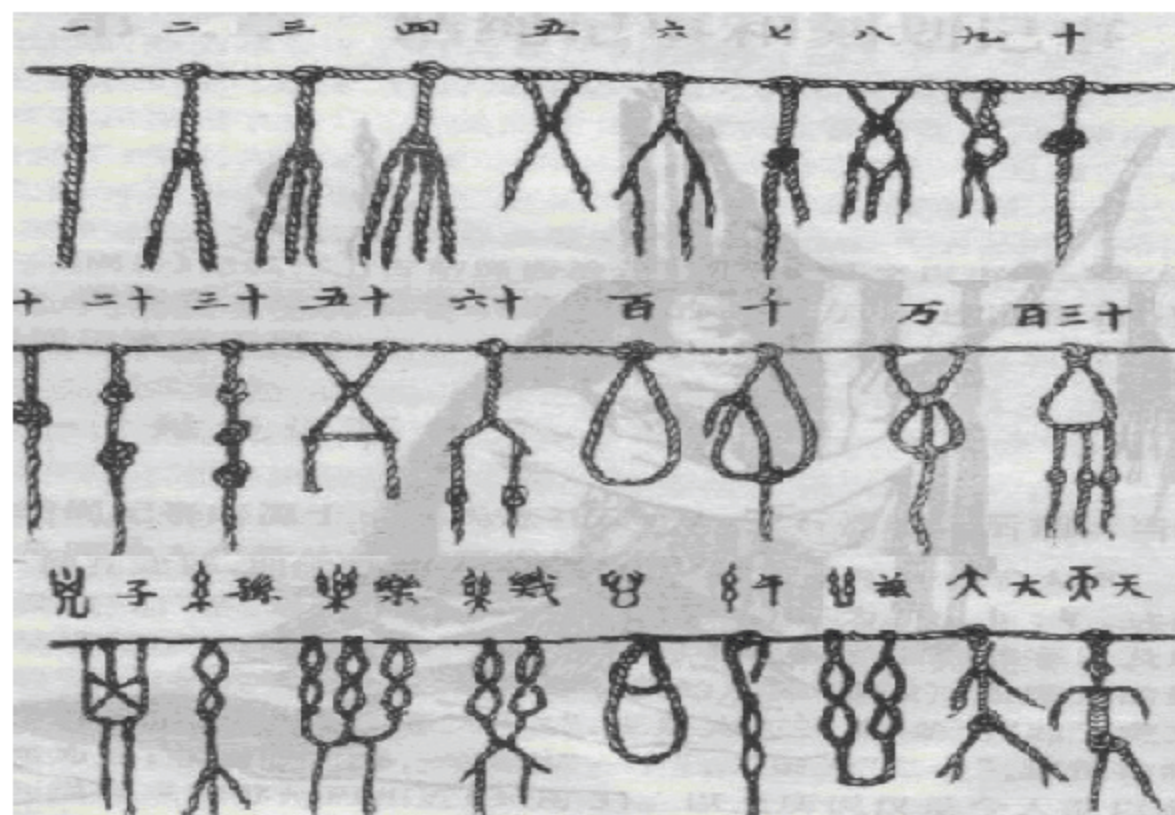 一 二 三 四 五 六 七 八 九 十
十 二十 三十 五十 六十 百 千 万 百三十
子 孫 樂 幾 午 茲 大 天